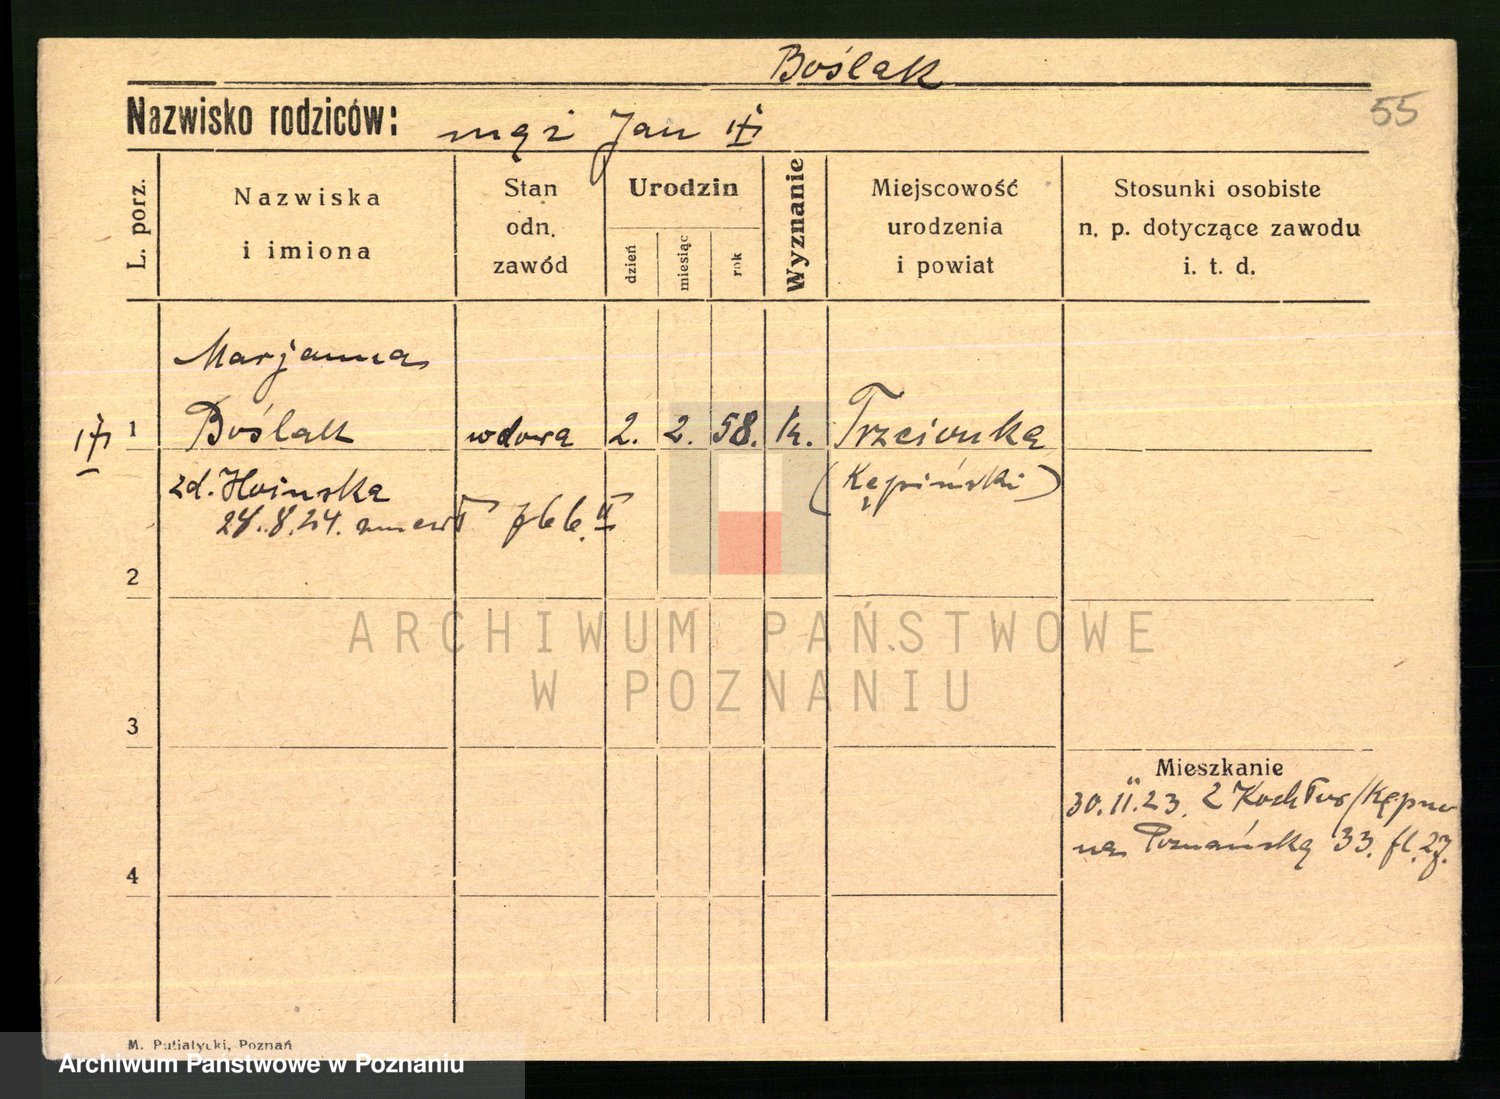 Boślak
55
Nazwisko rodziców: mąż Jan
L. porz.
Nazwiska i imiona
Stan odn. zawód
Urodzin
dzień
miesiąc
rok
Wyznanie
Miejscowość urodzenia i powiat
Stosunki osobiste n. p. dotyczące zawodu i. t. d.
Marjanna
1 Boślak wdowa 2. 2. 58. k. Trzcionka
zd. Hoinska (Kępiński)
28.8.24.
2
3
4
Mieszkanie
30.11.23. z Kochłow/Kępno
na Poznańską 33.
ARCHIWUM PAŃSTWOWE
W POZNANIU
M. Putiatycki, Poznań
Archiwum Państwowe w Poznaniu